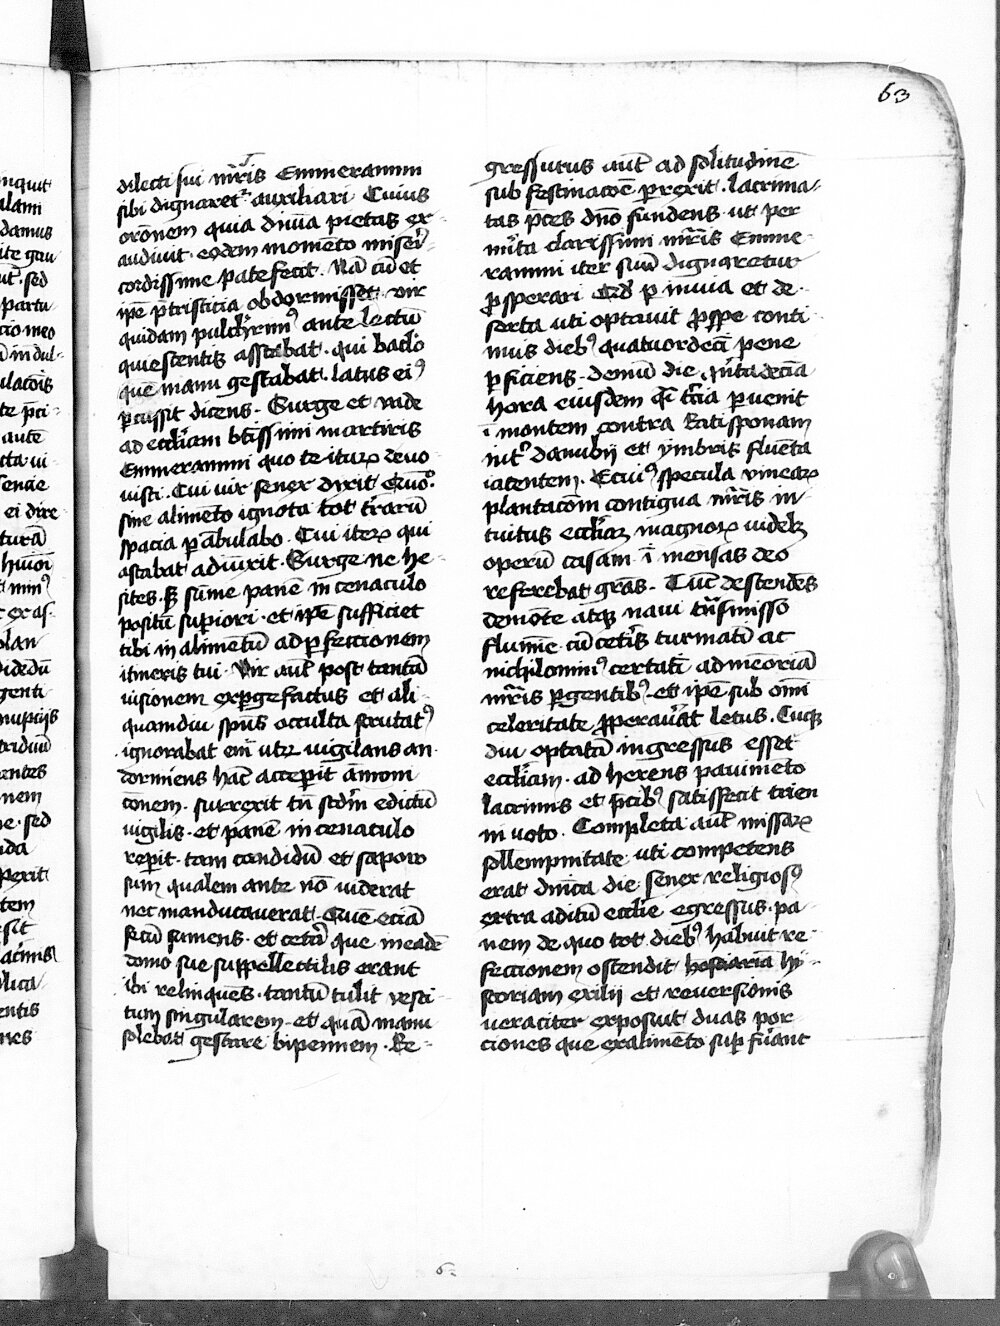 63
dilecti sui mr̄is Emmerammi
sibi dignaret᷑ auxiliari Cuius
orōnem quia diuīa pietas ex
audiuit · eodem momēto miseri
cordissime patefecit · Nā cū et
ip̄e p̄ tristicia obdormisset · vir
quidam pulcherrim⁹ ante lectū
quiescentis asstabat · qui baclo
quē manu gestabat · latus ei⁹
ꝑcussit dicens · Surge et vade
ad eccl̄iam bt̄issimi martiris
Emmerammi quo te iturꝝ deuo
uisti · Cui vir senex dixit Quō
sine alimēto ignota tot t̄rarū
spacia ꝑābulabo · Cui iterꝝ qui
astabat adiūxit · Surge ne he
sites · sꝫ sūme panē in cenaculo
positū suꝑiori · et ip̄e sufficiet
tibi in alimētū ad ꝑfeccionem
itineris tui · Vir aūt post tantā
uisionem exꝑgefactus et ali
quamdiu sp̄us occulta scrutat⁹
ignorabat em̄ utꝝ uigilans an
dormiens hāc accepit āmoni
cōnem · surrexit tn̄ scdm̄ edictū
uigilis · et panē in cenaculo
reꝑit · tam candidū et saporo
sum qualem ante nō viderat
nec manducauerat · Quē eciā
secū sumens · et cetā que in eadē
domo sue suppellectilis erant
ibi relinquēs · tantū tulit vesti
tum singularem · et quā manu
solebat gestare bipennem · Re
gressurus aūt ad solitudinē
sub festinacōe ꝑrexit · lacrima
tas p̄ces dn̄o fundens · ut per
mīta clarissimi mr̄is Emme
rammi iter suū dignaretur
ꝓsperari Qd̄ ꝑ inuia et de
serta uti optauit ꝓspe conti
nuis dieb⁹ quatuordecī pene
ꝑficiens · demū die q̄nta decīa
hora eiusdem q̄i t̄cia ꝑuenit
ī montem contra Ratisponam
int᷑ danubij et ymbris fluēta
iacentem · Et cui⁹ specula vinearꝝ
plantacōm contigua mr̄is in
tuitus eccl̄iaꝫ magnorꝝ uidelꝫ
operū casam · ī mensas deo
referebat gr̄as · Tūc descendēs
demōte atqꝫ naui t̄nsmisso
flumīe · cū cetīs turmatī ac
nichilomin⁹ certatī ad memoriā
mr̄is ꝑgentib⁹ · et ip̄e sub omī
celeritate ꝓꝑauāt letus · Cūqꝫ
diu optatā ingressus esset
eccl̄iam · adherens pauimēto
lacrimis et p̄cib⁹ satisfecit trien
ni voto · Completa aūt missarꝝ
sollempnitate uti competens
erat dn̄ica die · senex religios⁹
extra aditū eccl̄ie egressus · pa
nem de quo tot dieb⁹ habuit re
feccionem ostendit hostiaria hy
storiam exilij et reuersionis
ueraciter exposuit duas por
ciones que ex alimēto suꝑfuāt